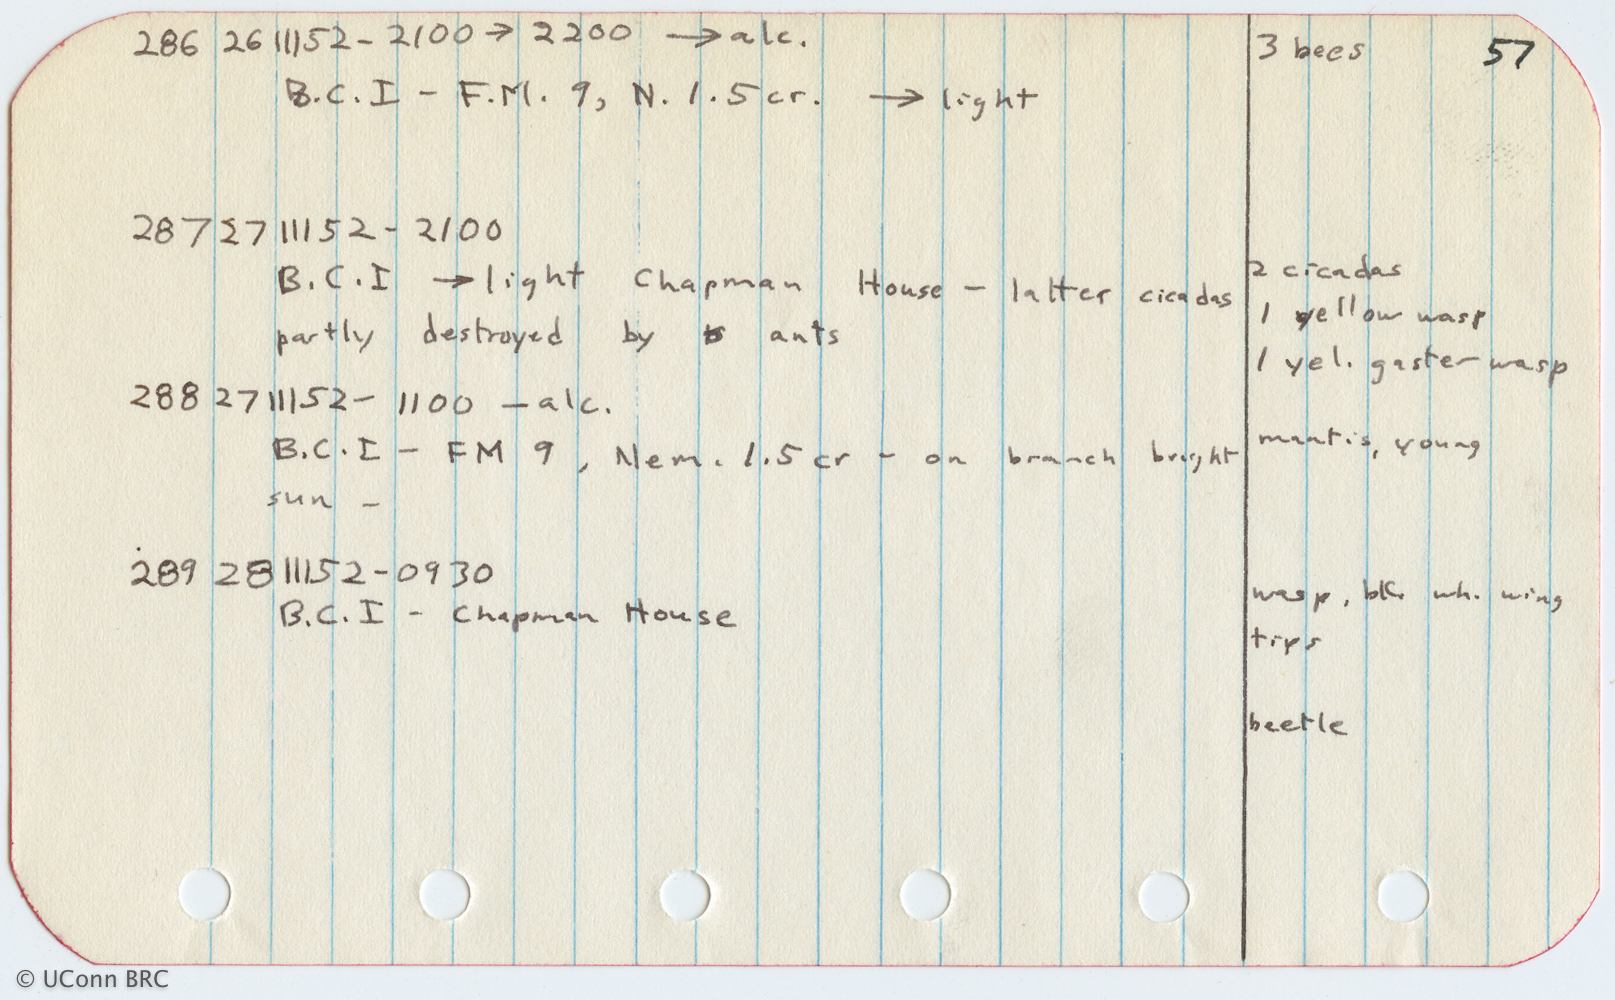 286 26 III 52 - 2100 → 2200 → alc. 3 bees 57
B.C.I - F.M. 9, N. 1.5 cr. → light
287 27 III 52 - 2100
B.C.I → light Chapman House - latter cicadas 2 cicadas
1 yellow wasp
partly destroyed by ants
1 yel. gaster wasp
288 27 III 52 - 1100 - alc.
B.C.I - FM 9, Nem. 1.5 cr - on branch bright mantis, young
sun -
289 28 III 52 - 0930
wasp, blk. wh. wing
B.C.I - Chapman House
tips
beetle
© UConn BRC